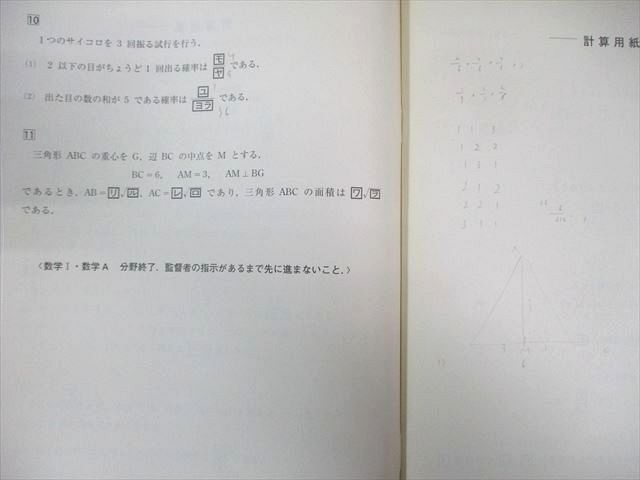 10
1つのサイコロを 3 回振る試行を行う.
(1) 2 以下の目がちょうど 1 回出る確率は モ/ヤ である.
(2) 出た目の数の和が 5 である確率は ユ/ヨラ である.
36
11
三角形 ABC の重心を G, 辺 BC の中点を M とする.
BC=6, AM=3, AM⊥BG
であるとき, AB=リ√ル, AC=レ√ロ であり, 三角形 ABC の面積は ワ√ヲ
である.
〈数学Ⅰ・数学A 分野終了. 監督者の指示があるまで先に進まないこと.〉
計算用紙
1 1 3
1 2 2
1 3 1
2 1 2
2 2 1
3 1 1
6
216
A
3
M
6